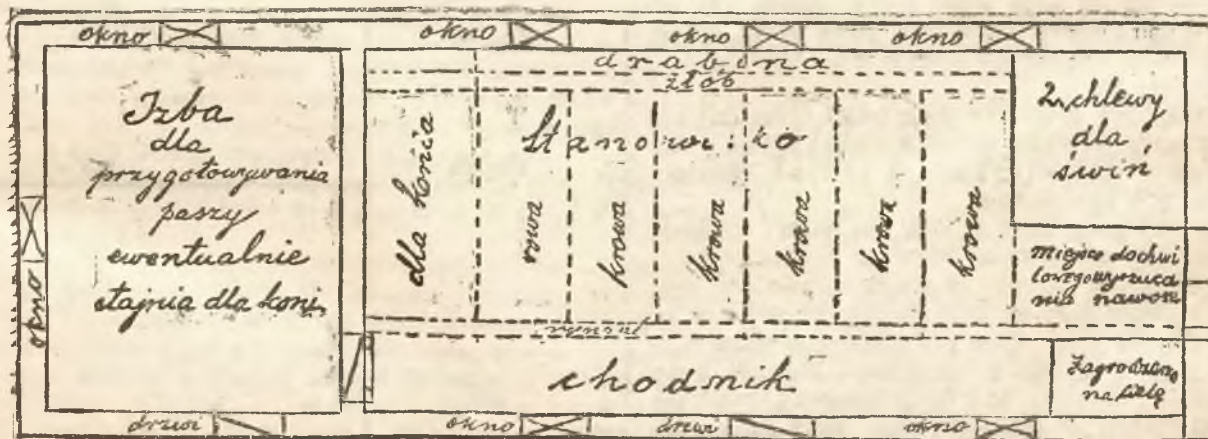 okno
okno
okno
okno
drabina
żłób
Izba
dla
przygotowywania
paszy
ewentualnie
stajnia dla koni
okno
Stanowisko
dla konia
krowa
krowa
krowa
krowa
krowa
krowa
2 chlewy
dla
świń
miejsce do chwi
lowego wyrzuca
nia nawozu
chodnik
Zagrodzenie
na cielę
drzwi
okno
drzwi
okno